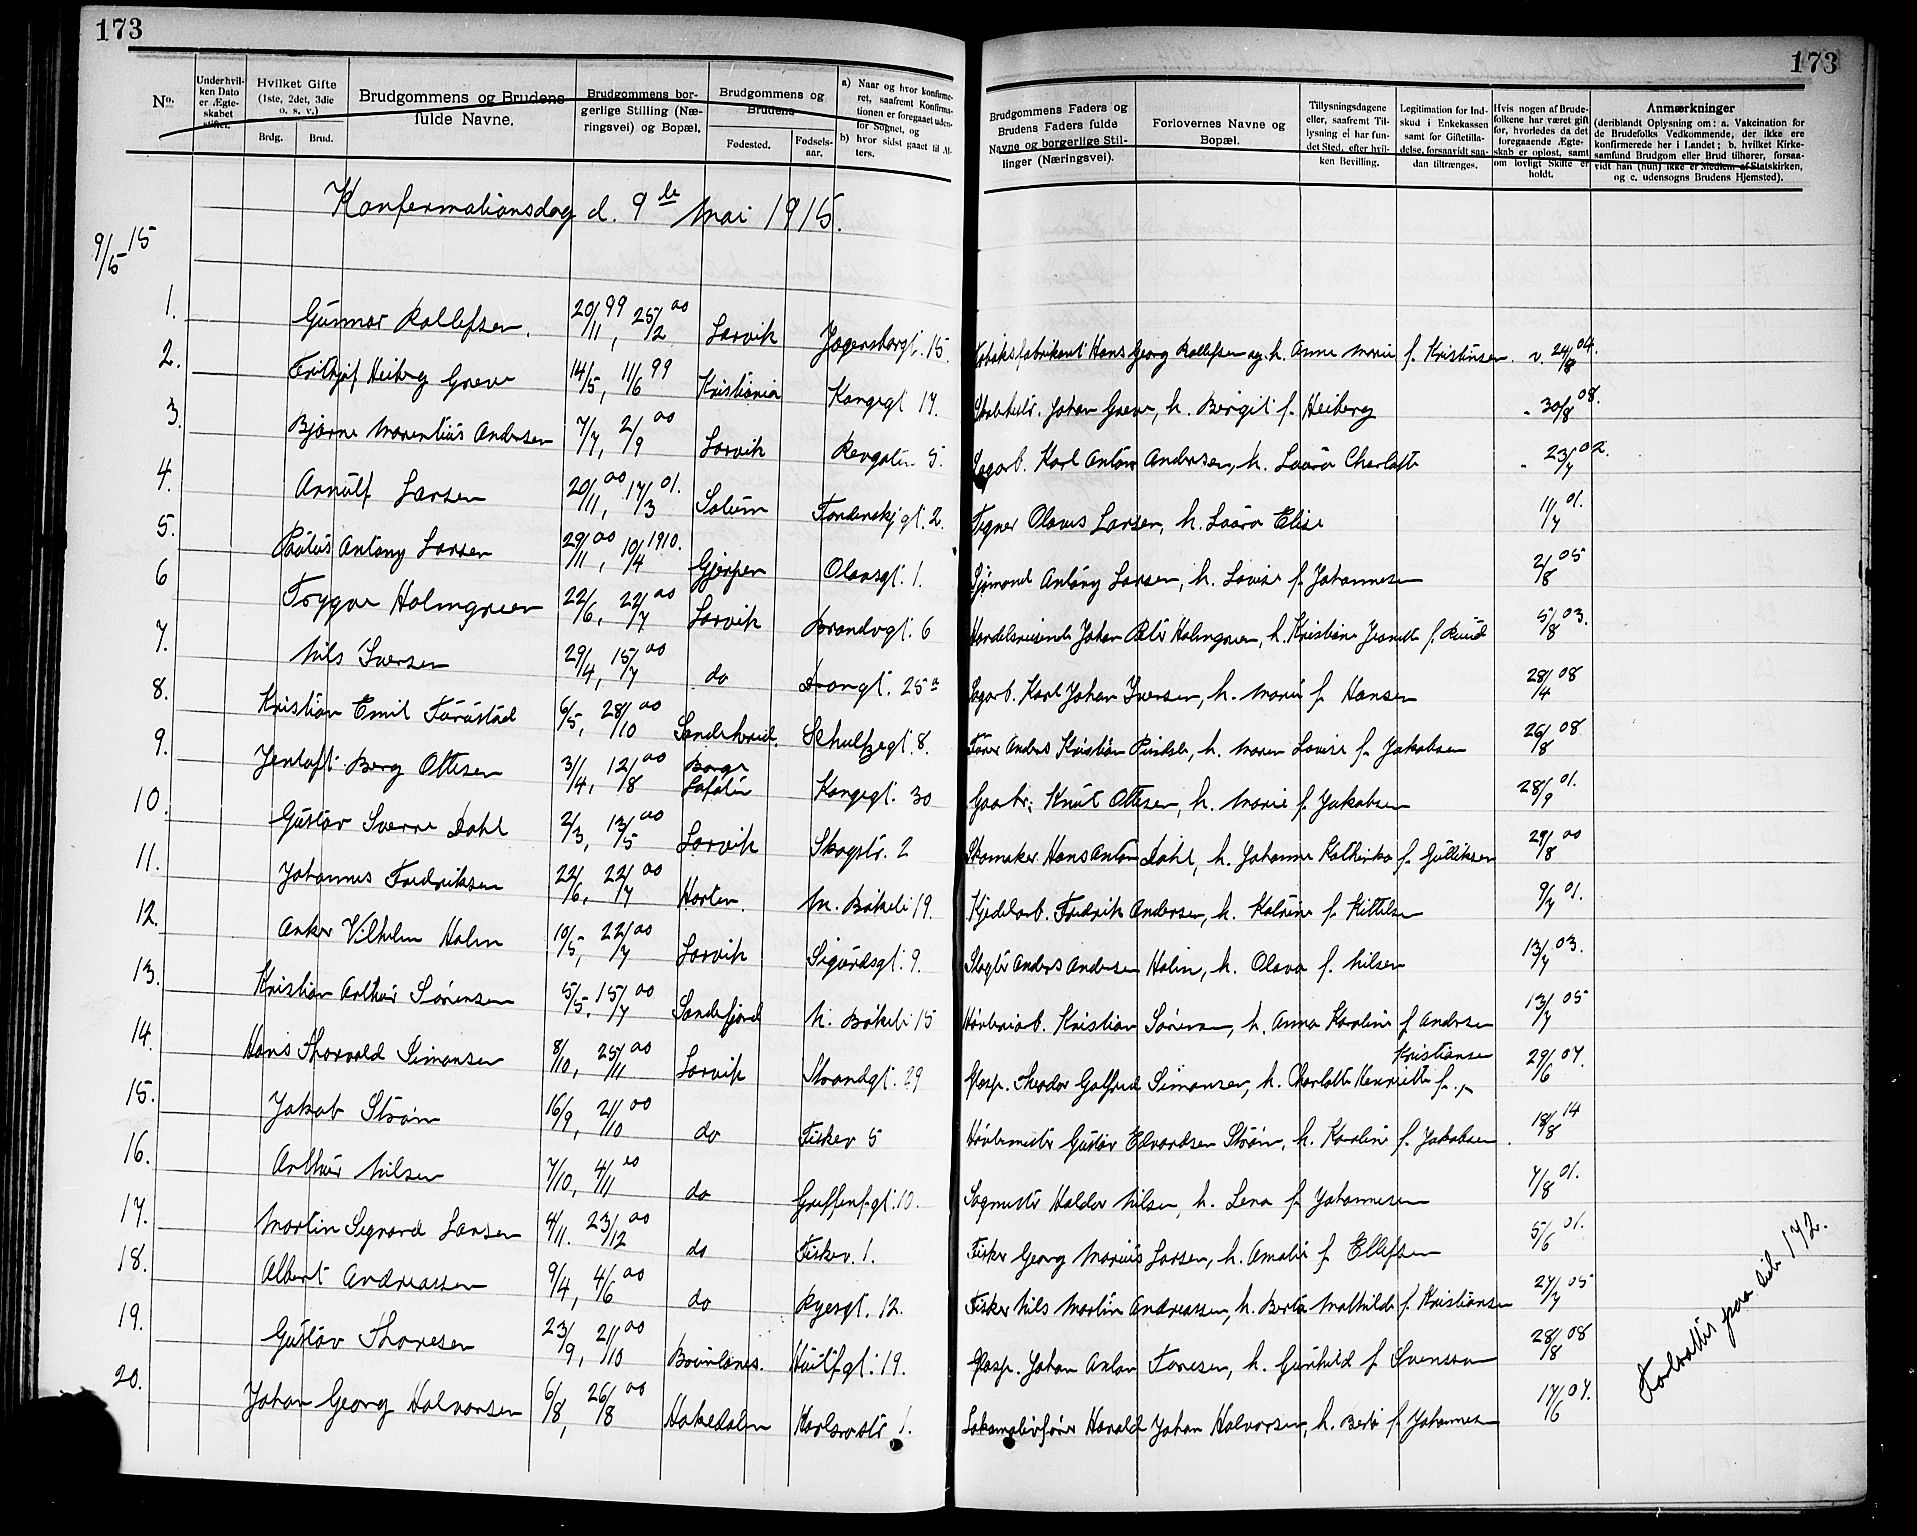 173
173
No.
Underhvilken Dato er Ægteskabet stiftet.
Hvilket Gifte (1ste, 2det, 3die o. s. v.)
Brdg.
Brud.
Brudgommens og Brudens fulde Navne.
Brudgommens borgerlige Stilling (Næringsvei) og Bopæl.
Brudgommens og Brudens
Fødested.
Fødselsaar.
a) Naar og hvor konfirmeret, saafremt Konfirmationen er foregaaet udenfor Sognet, og
b) hvor sidst gaaet til Alters.
Brudgommens Faders og Brudens Faders fulde Navne og borgerlige Stillinger (Næringsvei).
Forlovernes Navne og Bopæl.
Tillysningsdagene eller, saafremt Tillysning ei har fundet Sted, efter hvilken Bevilling.
Legitimation for Indskud i Enkekassen samt for Giftetilladelse, forsaavidt saadan tiltrænges.
Hvis nogen af Brudefolkene har været gift før, hvorledes da det foregaaende Ægteskab er opløst, samt om lovligt Skifte er holdt.
Anmærkninger
(deriblandt Oplysning om: a. Vakcination for de Brudefolks Vedkommende, der ikke ere konfirmerede her i Landet; b. hvilket Kirkesamfund Brudgom eller Brud tilhører, forsaavidt han (hun) ikke er Medlem af Statskirken, og c. udensogns Brudens Hjemsted).
Konfermationsdag d. 9de Mai 1915.
9/5 15
1. Gunnar Rollefsen. 20/11 99, 25/2 00 Larvik Jegersborgt. 15. Tobaksfabrikant Hans Georg Rollefsen og h. Anne Marie f. Kristensen. v. 24/8 04.
2. Fridtjof Heiberg Greve 14/5, 11/6 99 Kristiania Kongegt 17. Johan Greve, h. Bergit f. Heiberg 30/8 08.
3. Bjarne Marentius Andersen 7/7, 2/9 00 Larvik 5. Sagarb. Karl Anton Andersen, h. Laura Charlotte 23/7 02.
4. Arnulf Larsen 20/11 00, 17/3 01. Solum Tordenskj gt. 2. Tegner Olaves Larsen, h. Laura Elise 11/7 01.
5. Paulus Antony Larsen 29/11 00, 10/4 1910. Gjerpen Olavsgt. 1. Sjømand Antony Larsen, h. Lovise f. Johannesen 2/8 05
6 Trygve Holmgreen 22/6, 22/7 00 Larvik Brandvgt. 6 Handelsreisende Johan Peter Holmgreen, h. Kristiane Jeanette f. Ruud 5/8 03.
7. Nils Iversen 29/4, 15/7 00 do 25a Sagarb. Karl Johan Iversen, h. Marie f. Hansen 28/4 08
8. Kristian Emil Furustad 6/5, 28/10 00 Sandeherred. Schultzegt. 8. Anders Kristian h. Maren Lovise f. Jakobsen 26/8 08.
9. Jentoft Berg Ottesen 3/4, 12/8 00 Borge Lofoten Kongegt. 30 Gaabr: Knut Ottesen, h. Marie f. Jakobsen 28/9 01.
10. Gustav Sverre Dahl 2/3, 13/5 00 Larvik Skogstr. 2 Skomaker Hans Anton Dahl, h. Johanne Kathinka f. Gulliksen 29/8 00
11. Johannes Fredriksen 22/6, 22/7 00 Horten. N. Bøkeli 19. Kjedelarb. Fredrik Andersen, h. Katrine f. Kittelsen 9/7 01.
12. Anker Vilhelm Holm 10/5, 22/7 00 Larvik Sigurdsgt. 9. Slagter Anders Andersen Holm, h. Olava f. Nilsen 13/7 03.
13. Kristian Arthur Sørensen 5/5, 15/7 00 Sandefjord N. Bøkeli 15 Høvleriarb. Kristian Sørensen, h. Anna Karoline f Andersen 13/7 05
14. Hans Thorvald Simonsen 8/10, 25/11 00 Larvik Strandgt. 29 Theodor Gotfred Simonsen, h. Charlotte Henriette f. Kristiansen 29/6 07.
15. Jakob Strøm 16/9, 21/10 00 do Fiskev 5 Høvlemester Gustav Edvardsen Strøm, h. Karoline f. Jakobsen. 18/8 14
16. Arthur Nilsen 7/10, 4/11 00 do Greffenfgt. 10. Sagmester Haldor Nilsen, h. Lena f. Johannesen 7/8 01.
17. Martin Segvard Larsen 4/11. 23/12 00 do Fiskev. 1. Fisker Georg Marius Larsen, h. Amalie f. Ellefsen 5/6 01.
18. Albert Andreassen 9/4, 4/6 00 do Ryesgt. 12. Fisker Nils Martin Andreassen, h. Berta Mathilde f. Kristiansen 27/7 05
19. Gustav Thoresen 23/9, 21/10 00 Huitfgt. 19. Johan Anton Toresen, h. Gunhild f Svensson 28/8 08
20. Johan Georg Halvorsen 6/8, 26/8 00 Hakedalen 1. Lokomotivfører Harald Johan Halvorsen, h. Berta f. Johannesen 17/6 07.
Fortsættes paa side 172.